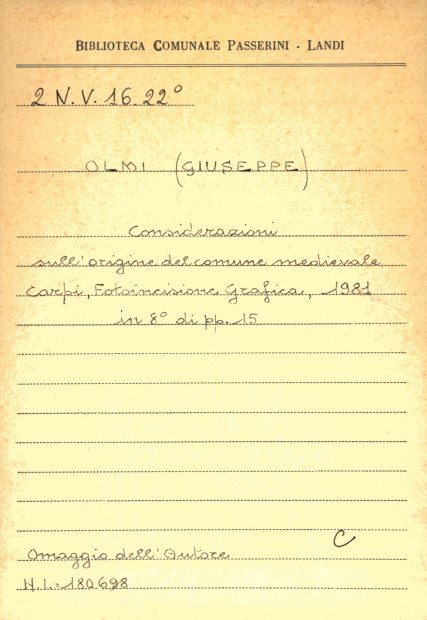 BIBLIOTECA COMUNALE PASSERINI - LANDI
2 N.V. 16.22°
OLMI (GIUSEPPE)
Considerazioni
sull'origine del comune medievale
Carpi, Fotoincisione Grafica, 1981
in 8° di pp. 15
C
Omaggio dell'Autore
N.I.=180698